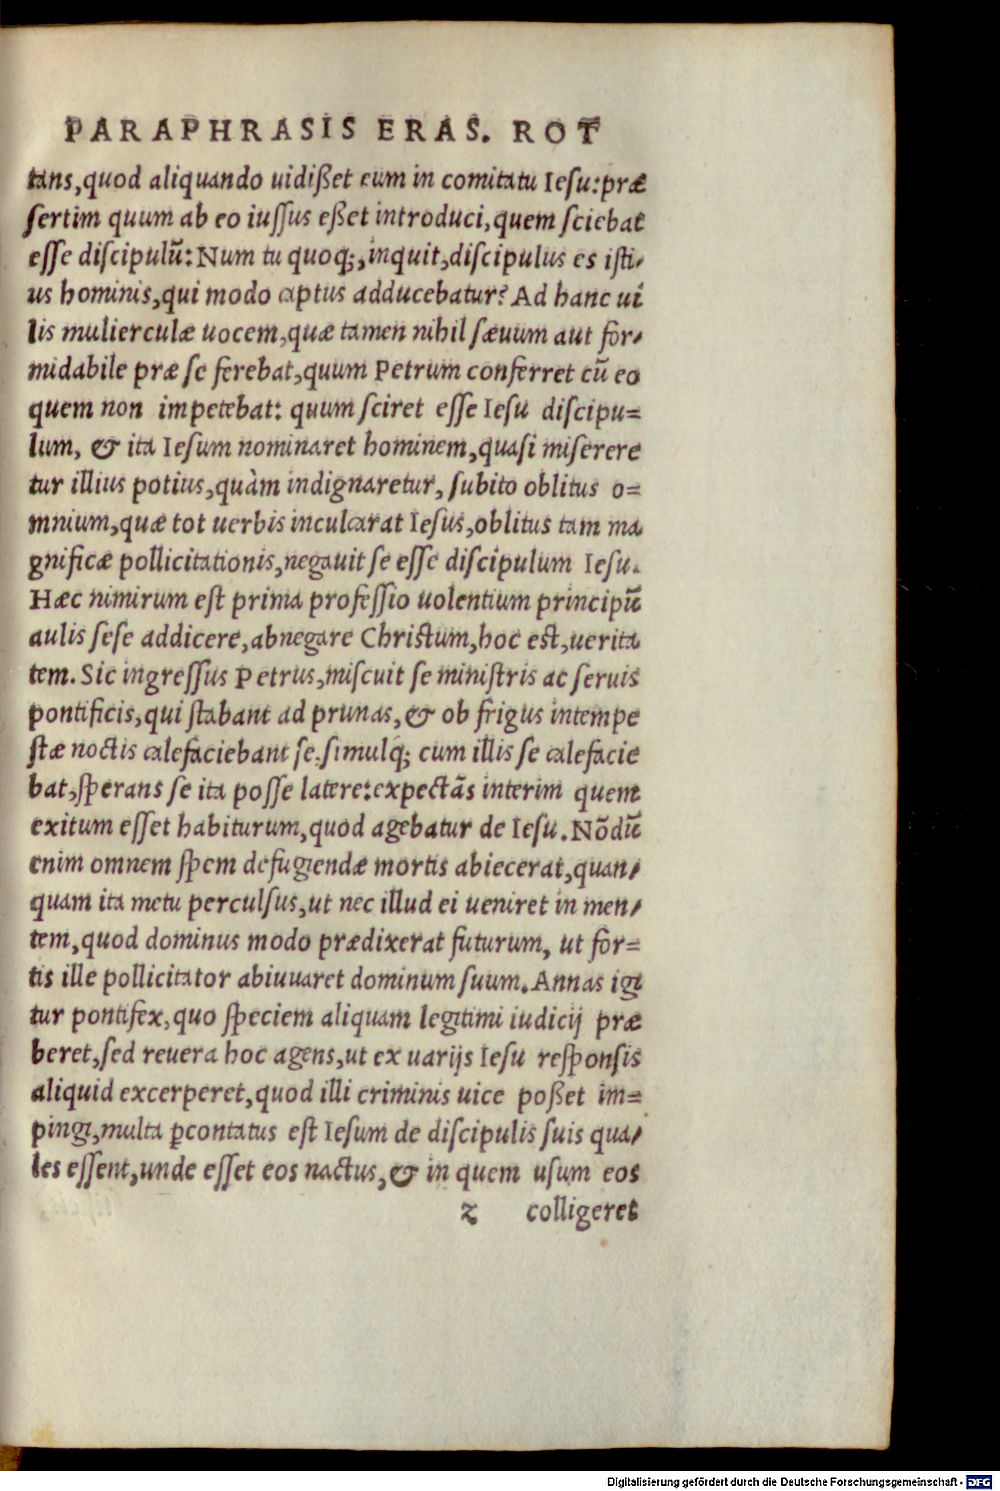 PARAPHRASIS ERAS. ROT
tans,quod aliquando uidißet eum in comitatu Iesu:præ
sertim quum ab eo iussus eßet introduci,quem sciebat
esse discipulũ: Num tu quoq;,inquit,discipulus es isti⸗
us hominis,qui modo captus adducebatur? Ad hanc ui
lis mulierculæ uocem,quæ tamen nihil sæuum aut for⸗
midabile præ se ferebat,quum Petrum conferret cũ eo
quem non impetebat: quum sciret esse Iesu discipu=
lum, & ita Iesum nominaret hominem,quasi miserere
tur illius potius,quàm indignaretur, subito oblitus o=
mnium,quæ tot uerbis inculcarat Iesus,oblitus tam ma
gnificæ pollicitationis,negauit se esse discipulum Iesu.
Hæc nimirum est prima professio uolentium principũ
aulis sese addicere,abnegare Christum,hoc est,uerita
tem. Sic ingressus Petrus,miscuit se ministris ac seruis
pontificis,qui stabant ad prunas,& ob frigus intempe
stæ noctis calefaciebant se,simulq; cum illis se calefacie
bat,sperans se ita posse latere:expectãs interim quem
exitum esset habiturum,quod agebatur de Iesu. Nõdũ
enim omnem spem defugiendæ mortis abiecerat,quan⸗
quam ita metu perculsus,ut nec illud ei ueniret in men⸗
tem,quod dominus modo prædixerat futurum, ut for=
tis ille pollicitator abiuuaret dominum suum. Annas igi
tur pontifex,quo speciem aliquam legitimi iudicij præ
beret,sed reuera hoc agens,ut ex uarijs Iesu responsis
aliquid excerperet,quod illi criminis uice poßet im=
pingi,multa ꝑcontatus est Iesum de discipulis suis qua⸗
les essent,unde esset eos nactus,& in quem usum eos
z colligeret
Digitalisierung gefördert durch die Deutsche Forschungsgemeinschaft - DFG